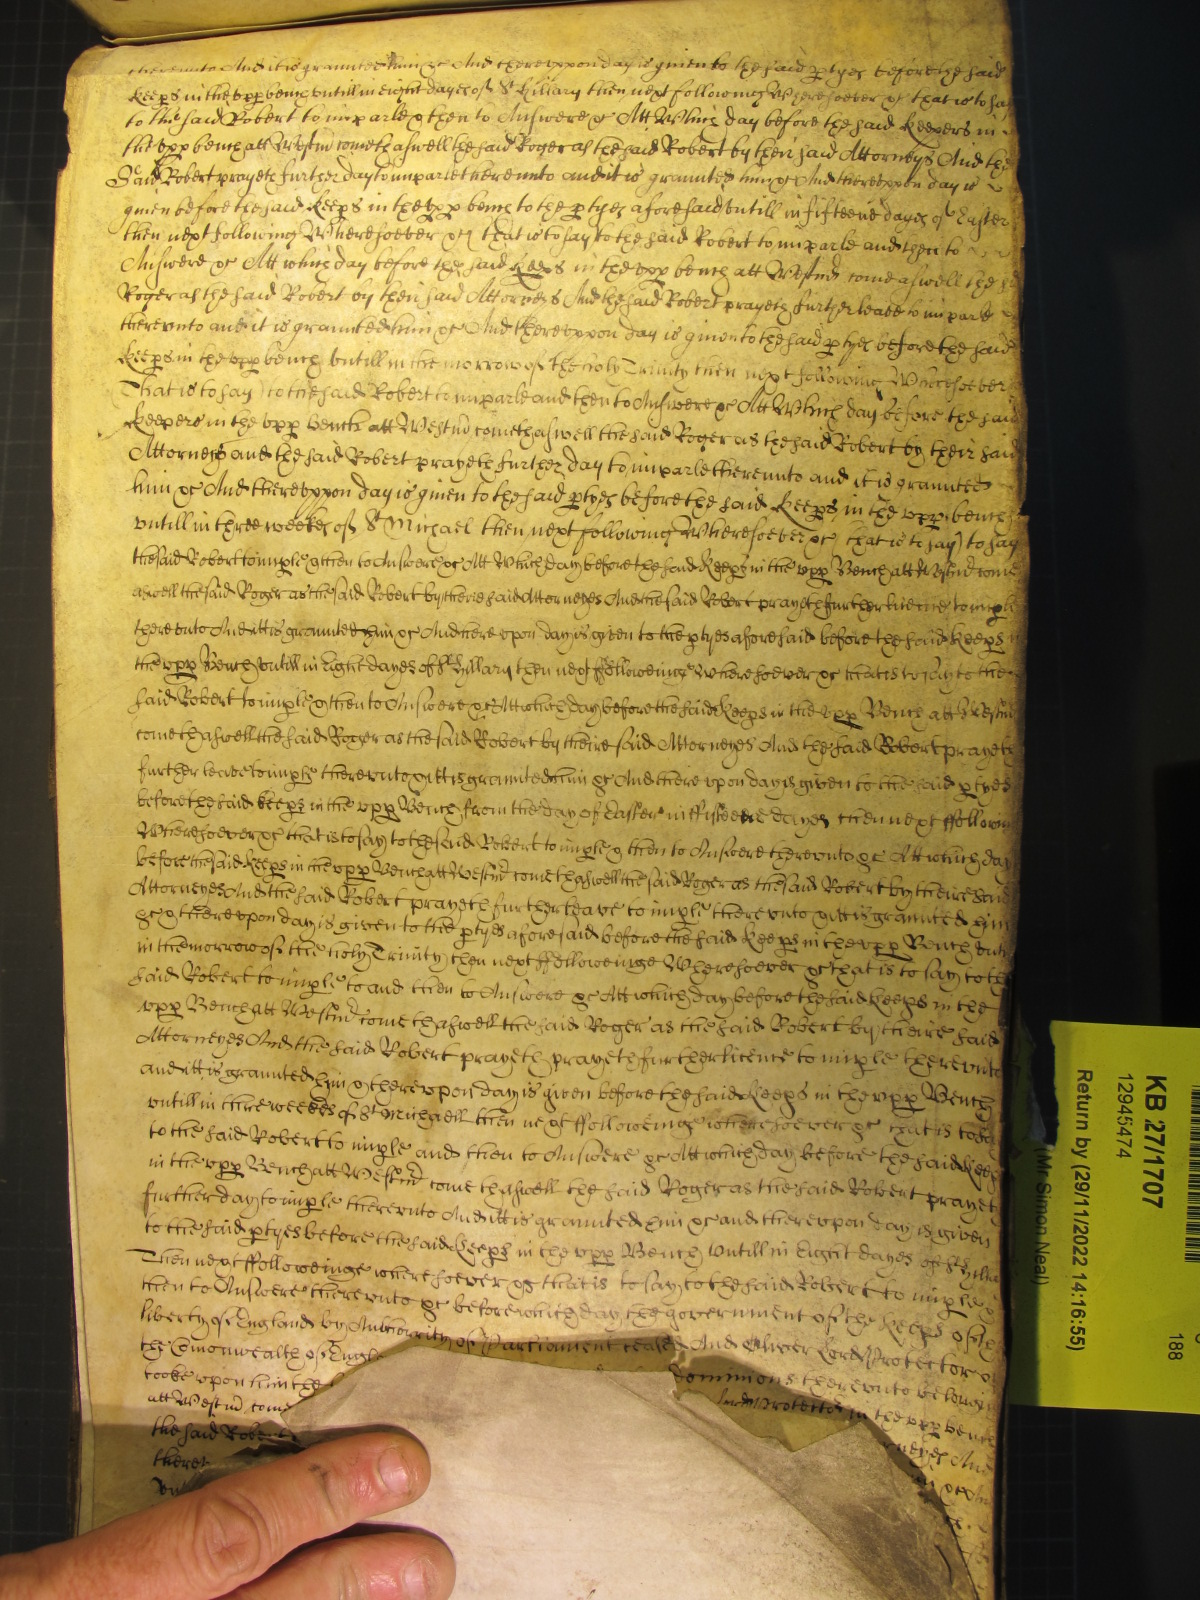 thereunto And it is graunted him &c And thereuppon day is given to the said ptyes before the said
Keeps in the upp bench untill in eight dayes of St Hillary then next following Wheresoever &c that is to say
to the said Robert to imparle & then to Answere &c Att Which day before the said Keepers in
the upp bench att Westm cometh aswell the said Roger as the said Robert by their said Attorneys And the
Said Robert prayeth further day to imparle thereunto and it is graunted him &c And thereuppon day is
given before the said Keeps in the upp bench to the ptyes aforesaid untill in fifteene dayes of Easter
then next following Wheresoever &c that is to say to the said Robert to imparle and then to
Answere &c Att which day before the said Keeps in the upp bench att Westm come aswell the
Roger as the said Robert by their said Attorneys And the said Robert prayeth further leave to imparle
thereunto and it is graunted him &c And thereuppon day is given to the said ptyes before the said
Keeps in the upp bench untill in the morrow of the holy Trinity then next following Wheresoever
That is to say to the said Robert to imparle and then to Answere &c Att Which day before the said
Keepers in the upp bench att Westm cometh aswell the said Roger as the said Robert by their said
Attorneys and the said Robert prayeth further day to imparle thereunto and it is graunted
him &c And thereuppon day is given to the said ptyes before the said Keeps in the upp bench
untill in three weekes of St Michael then next following Wheresoever &c that is to say to say
the said Robert to imple & then to Answere &c Att Which day before the said Keeps in the upp Bench att Westm come
aswell the said Roger as the said Robert by theire said Attorneyes And the said Robert prayeth further licence to imple
thereunto And itt is graunted him &c And there upon day is given to the ptyes aforesaid before the said Keeps
the upp Bench untill in Eight dayes of St Hyllary then next ffolloweinge Wheresoever &c that is to say to the
said Robert to imple & then to Answere &c Att which day before the said Keeps in the upp Bench att Westm
come thaswell the said Roger as the said Robert by theire said Attorneyes And the said Robert prayeth
further leave to imple thereunto & itt is graunted him &c And there upon day is given to the said ptyes
before the said Keeps in the upp Bench from the day of Easter in ffifteene dayes then next ffollow
Wheresoever &c that is to say to the said Robert to imple & then to Answere thereunto &c Att which day
before the said Keeps in the upp Bench att Westm come thaswell the said Roger as the said Robert by theire said
Attorneyes And the said Robert prayeth further leave to imple thereunto & itt is graunted him
&c & there upon day is given to the ptyes aforesaid before the said Keeps in the upp Bench untill
in the morrow of the holy Trinity then next ffolloweinge Wheresoever &c that is to say to the
said Robert to imple to and then to Answere &c Att which day before the said Keeps in the
upp Bench att Westm come thaswell the said Roger as the said Robert by theire said
Attorneyes And the said Robert prayeth prayeth further licence to imple thereunto
and itt is graunted him & there upon day is given before the said Keeps in the upp Bench
untill in three weekes of St Michaell then next ffolloweinge wheresoever &c that is to say
to the said Robert to imple and then to Answere &c Att which day before the said Keeps
in the upp Bench att Westm come thaswell the said Roger as the said Robert prayeth
further day to imple thereunto And itt is graunted him &c and there upon day is given
to the said ptyes before the said Keeps in the upp Bench untill in Eight dayes of St Hilla
Then next ffolloweinge wheresoever &c that is to say to the said Robert to imple &
then to Answere thereunto &c before which day the government of the Keeps of the
liberty of England by Authorrity of Parliament ceased And Oliver Lord Protector of
the Comonwealth of Engl Dominions thereunto belong
tooke upon him the Lord Protector in the upp bench
att Westm come neyes And
the said Robert &c
there
KB 27/1707
12945474
Return by (29/11/2022 14:16:55)
(Mr Simon Neal)
188